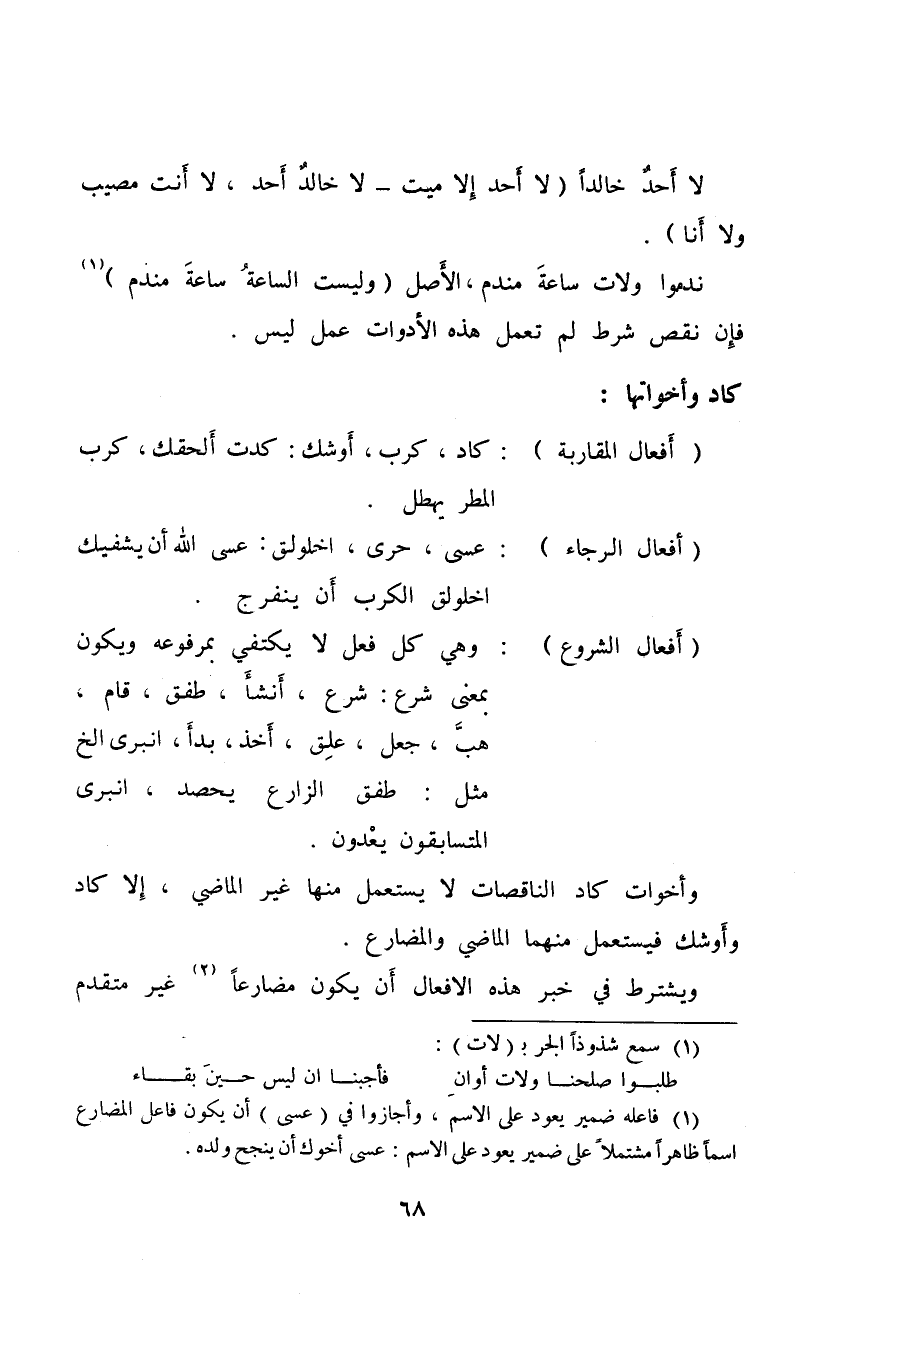 لا أَحدٌ خالداً ( لا أَحد إِلا ميت – لا خالدٌ أَحد ، لا أَنت مصيب
ولا أَنا ) .
ندموا ولات ساعةَ مندم ، الأَصل ( وليست الساعةُ ساعةَ مندم ) (١)
فإِن نقص شرط لم تعمل هذه الأدوات عمل ليس .
كاد وأخواتها :
( أَفعال المقاربة ) : كاد ، كرب ، أَوشك : كدت أَلحقك ، كرب
المطر يهطل .
( أَفعال الرجاء ) : عسى ، حرى ، اخلولق : عسى الله أَن يشفيك
اخلولق الكرب أَن ينفرج .
( أَفعال الشروع ) : وهي كل فعل لا يكتفي بمرفوعه ويكون
بمعنى شرع : شرع ، أَنشأَ ، طفق ، قام ،
هبَّ ، جعل ، علِق ، أَخذ ، بدأَ ، انبرى الخ
مثل : طفق الزارع يحصد ، انبرى
المتسابقون يعْدون .
وأَخوات كاد الناقصات لا يستعمل منها غير الماضي ، إِلا كاد
وأَوشك فيستعمل منهما الماضي والمضارع .
ويشترط في خبر هذه الافعال أَن يكون مضارعاً (٢) غير متقدم
(١) سمع شذوذاً الجر بـ ( لات ) :
طلبـوا صلحنـا ولات أوانِ فأجبنـا ان ليس حـينَ بقـاء
(١) فاعله ضمير يعود على الاسم ، وأجازوا في ( عسى ) أن يكون فاعل المضارع
اسماً ظاهراً مشتملاً على ضمير يعود على الاسم : عسى أخوك أن ينجح ولده .
٦٨